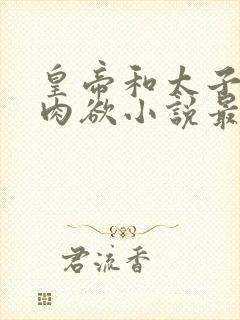 皇帝和太子
肉欲小説最
君流香